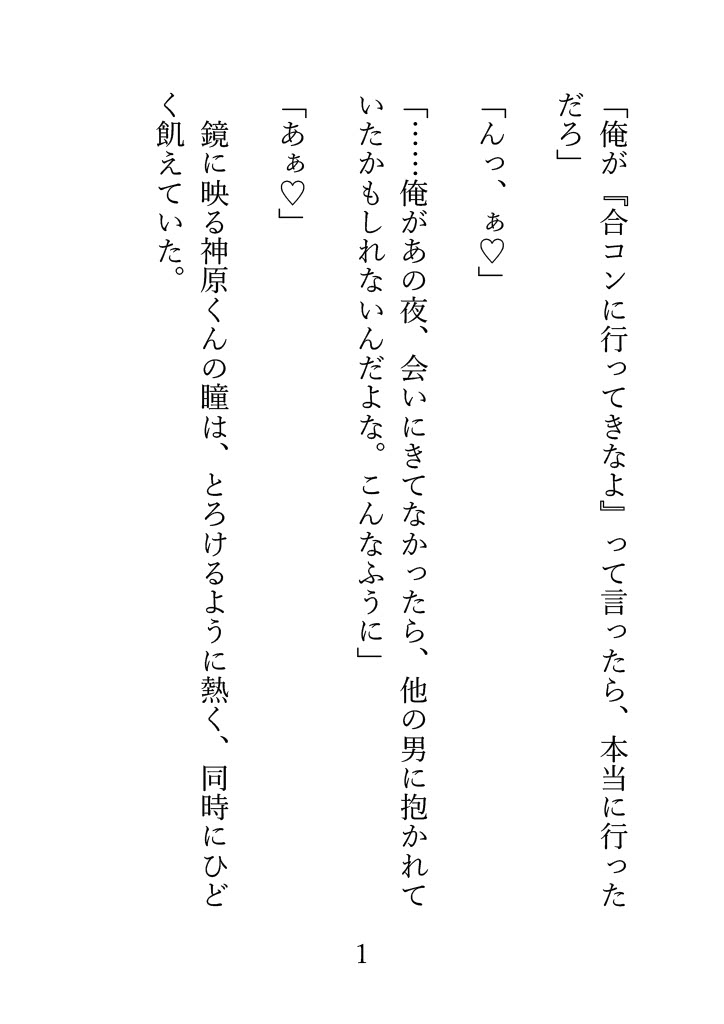 「俺が『合コンに行ってきなよ』って言ったら、本当に行った
だろ」
「んっ、ぁ♡」
「……俺があの夜、会いにきてなかったら、他の男に抱かれて
いたかもしれないんだよな。こんなふうに」
「あぁ♡」
　鏡に映る神原くんの瞳は、とろけるように熱く、同時にひど
く飢えていた。
1